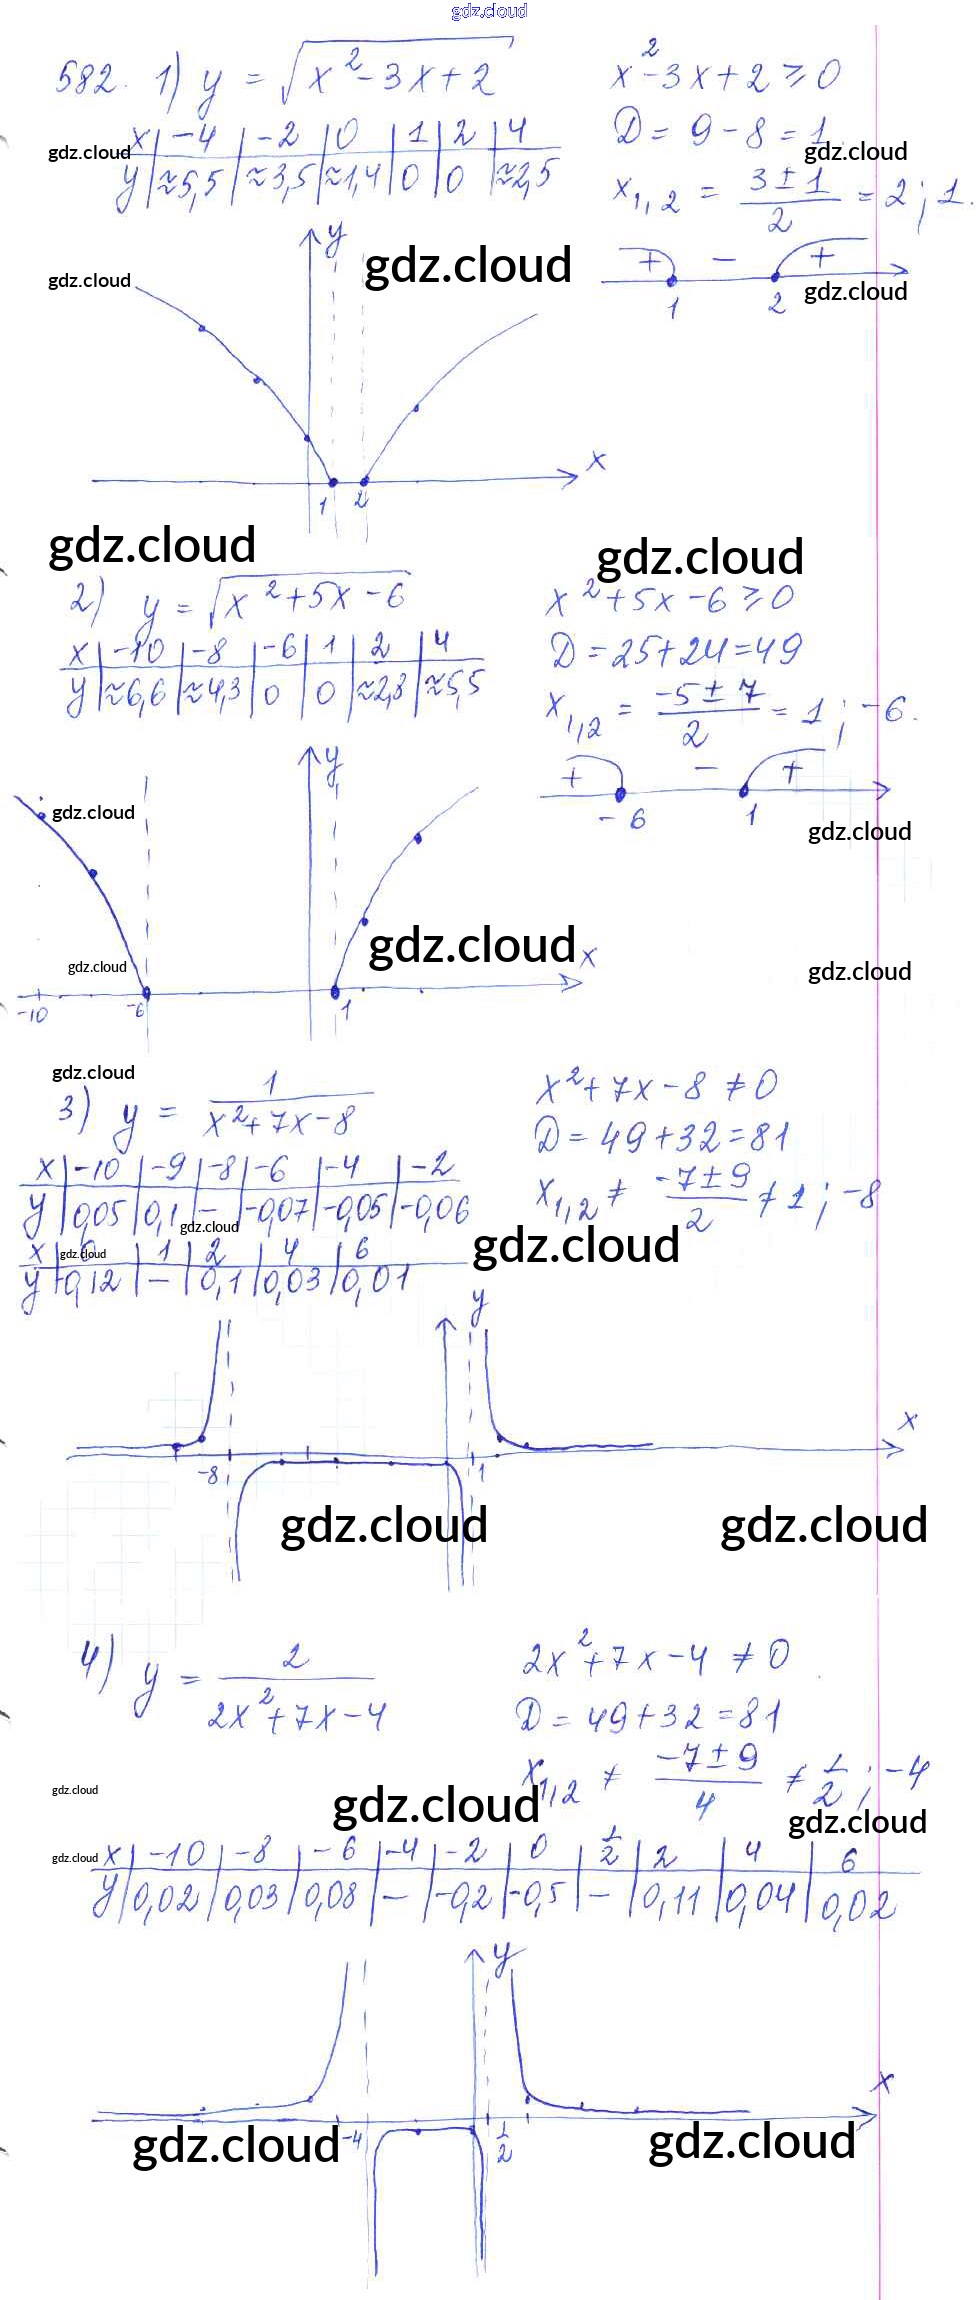 gdz.cloud
582. 1) y = √(x² - 3x + 2)
x² - 3x + 2 ≥ 0
x | -4 | -2 | 0 | 1 | 2 | 4
y | ≈5,5 | ≈3,5 | ≈1,4 | 0 | 0 | ≈2,5
D = 9 - 8 = 1.
gdz.cloud gdz.cloud
x₁,₂ = (3 ± 1)/2 = 2 ; 1.
y
gdz.cloud
+ - +
1 2
gdz.cloud gdz.cloud
x
1 2
gdz.cloud gdz.cloud
2) y = √(x² + 5x - 6)
x² + 5x - 6 ≥ 0
x | -10 | -8 | -6 | 1 | 2 | 4
y | ≈6,6 | ≈4,3 | 0 | 0 | ≈2,8 | ≈5,5
D = 25 + 24 = 49
x₁,₂ = (-5 ± 7)/2 = 1 ; -6.
y
+ - +
-6 1
gdz.cloud gdz.cloud
gdz.cloud
x
gdz.cloud gdz.cloud
-10 -6 1
gdz.cloud
3) y = 1/(x² + 7x - 8)
x² + 7x - 8 ≠ 0
D = 49 + 32 = 81
x | -10 | -9 | -8 | -6 | -4 | -2
y | 0,05 | 0,1 | - | -0,07 | -0,05 | -0,06
x₁,₂ ≠ (-7 ± 9)/2 ≠ 1 ; -8
gdz.cloud
gdz.cloud
gdz.cloud
x | 0 | 1 | 2 | 4 | 6
y | -0,12 | - | 0,1 | 0,03 | 0,01
y
x
-8 1
gdz.cloud gdz.cloud
4) y = 2/(2x² + 7x - 4)
2x² + 7x - 4 ≠ 0
D = 49 + 32 = 81
x₁,₂ ≠ (-7 ± 9)/4 ≠ 1/2 ; -4
gdz.cloud gdz.cloud gdz.cloud
gdz.cloud
x | -10 | -8 | -6 | -4 | -2 | 0 | 1/2 | 2 | 4 | 6
y | 0,02 | 0,03 | 0,08 | - | -0,2 | -0,5 | - | 0,11 | 0,04 | 0,02
y
x
-4 1/2
gdz.cloud gdz.cloud